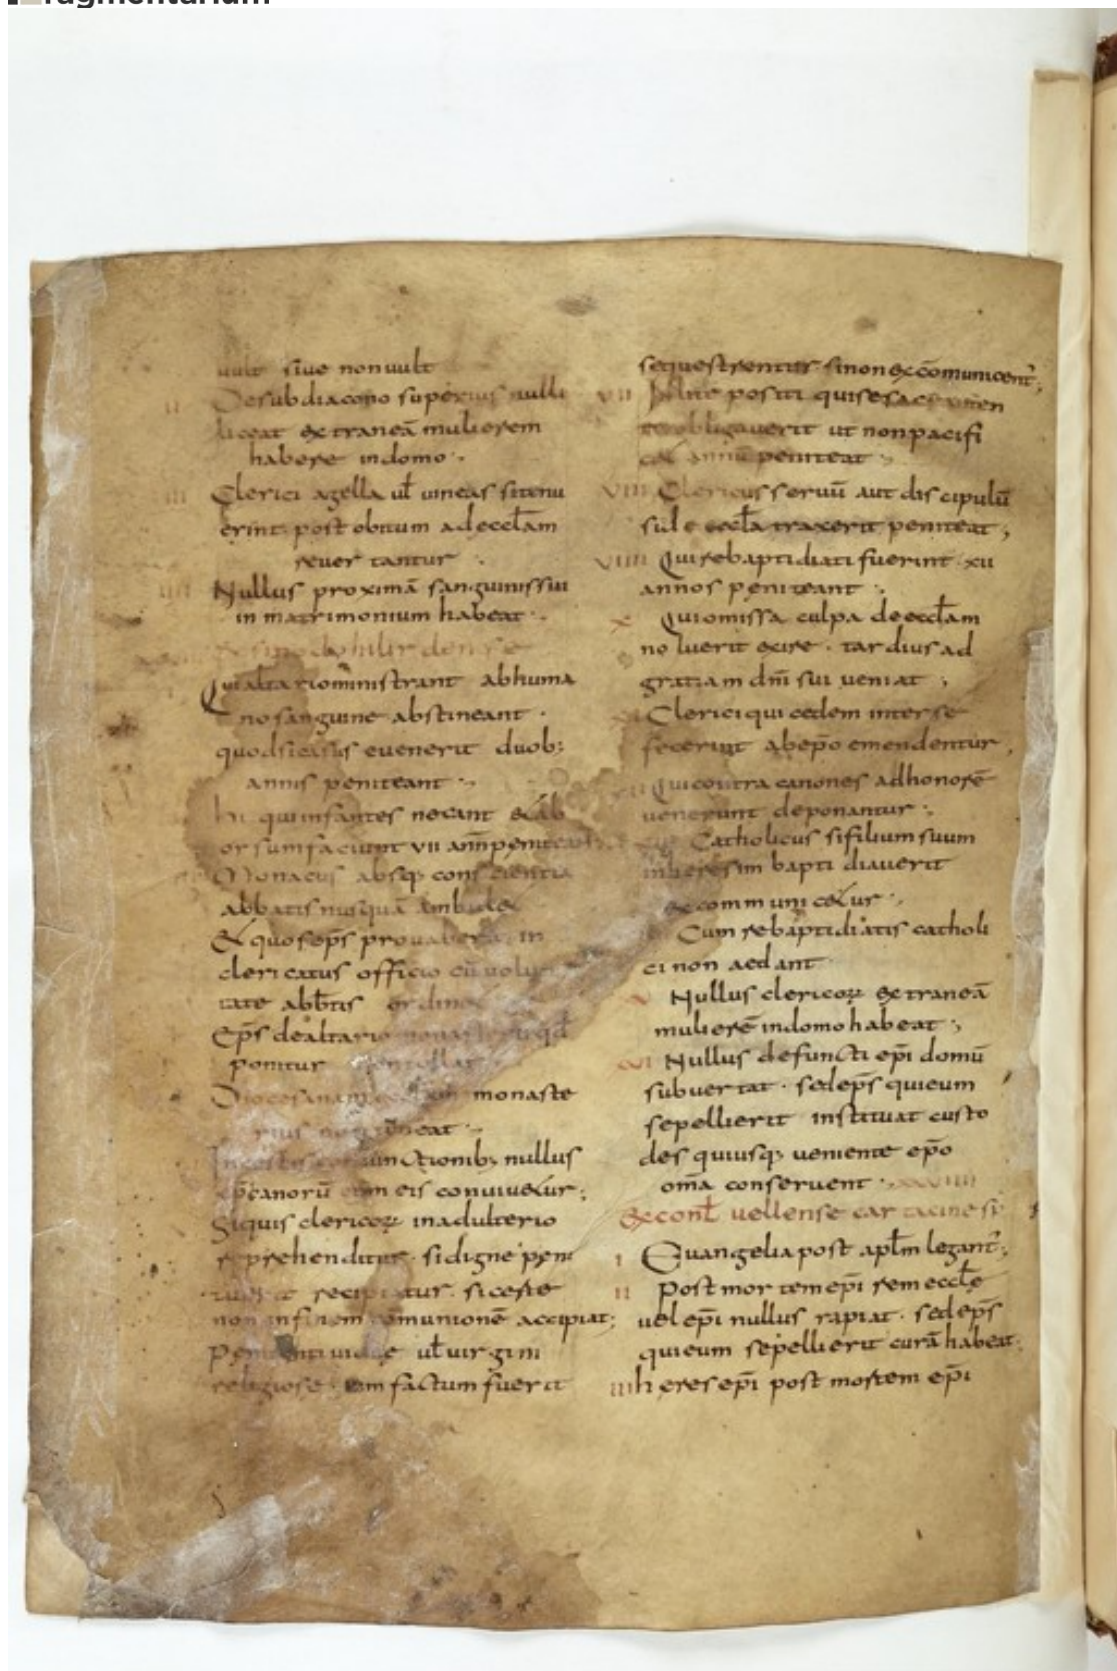 ragmentarium
uult siue non uult
II Desubdiacono superius nulli
liceat extraneā mulierem
habere indomo
III Clerici agella ul̄ uineas sitenu
erint post obitum adeccl̄am
reuertantur
IIII Nullus proximā sanguinissui
in matrimonium habeat
sinodo hilirdense
Quialtariom̄inistrant abhuma
nosanguine abstineant
quodsicasus euenerit duob;
annis peniteant
hi quiinfantes necant &ab
orsumfaciunt VII ann̄ peniteant
Monacus absq; conscientia
abbatis nusquā ambulet
&quosep̄s prouauerit in
clericatus officio cū uolun
tate abb̄tis ordinet
Ep̄s dealtario monasterii qd̄
ponitur
Diocesanam monaste
rius non
nullus
xp̄ianorū cum eis conuiuetur;
Siquis clericoꝝ inadulterio
reprehenditur. sidigne peni
tuerit recipiatur. siceste
non infinem cōmunionē accipiat;
Penitenti uidue ul̄ uirgini
religiose. uim factum fuerit
sequestrentur sinon excōmunicent̄;
VII Inlite positi quisesacramen
to obligauerit ut nonpacifi
cet annū peniteat
VIII Clericus seruū aut discipulū
sul e eccl̄a traxerit peniteat;
VIIII Quirebaptidiati fuerint XII
annos peniteant
X Quiomissa culpa deeccl̄am
noluerit exire. tardius ad
gratiam dn̄i sui ueniat;
XI Clericiqui cedem interse
fecerint abep̄o emendentur,
XII Quicontra canones adhonorē
uenerunt deponantur
Catholicus sifilium suum
inheresim baptidiauerit
excommunicetur
Cum rebaptidiatis catholi
ci non aedant
Nullus clericoꝝ extraneā
mulierē indomo habeat;
XVI Nullus defuncti ep̄i domū
subuertat. sedep̄s quieum
sepellierit instituat custo
des quiusq; ueniente ep̄o
om̄a conseruent
Excont̄ uellense cartacinesi
I Euangelia post apl̄m legant̄;
II Post mortem ep̄i rem eccl̄e
uel ep̄i nullus rapiat. sed ep̄s
quieum sepellierit curā habeat
III heres ep̄i post mortem ep̄i